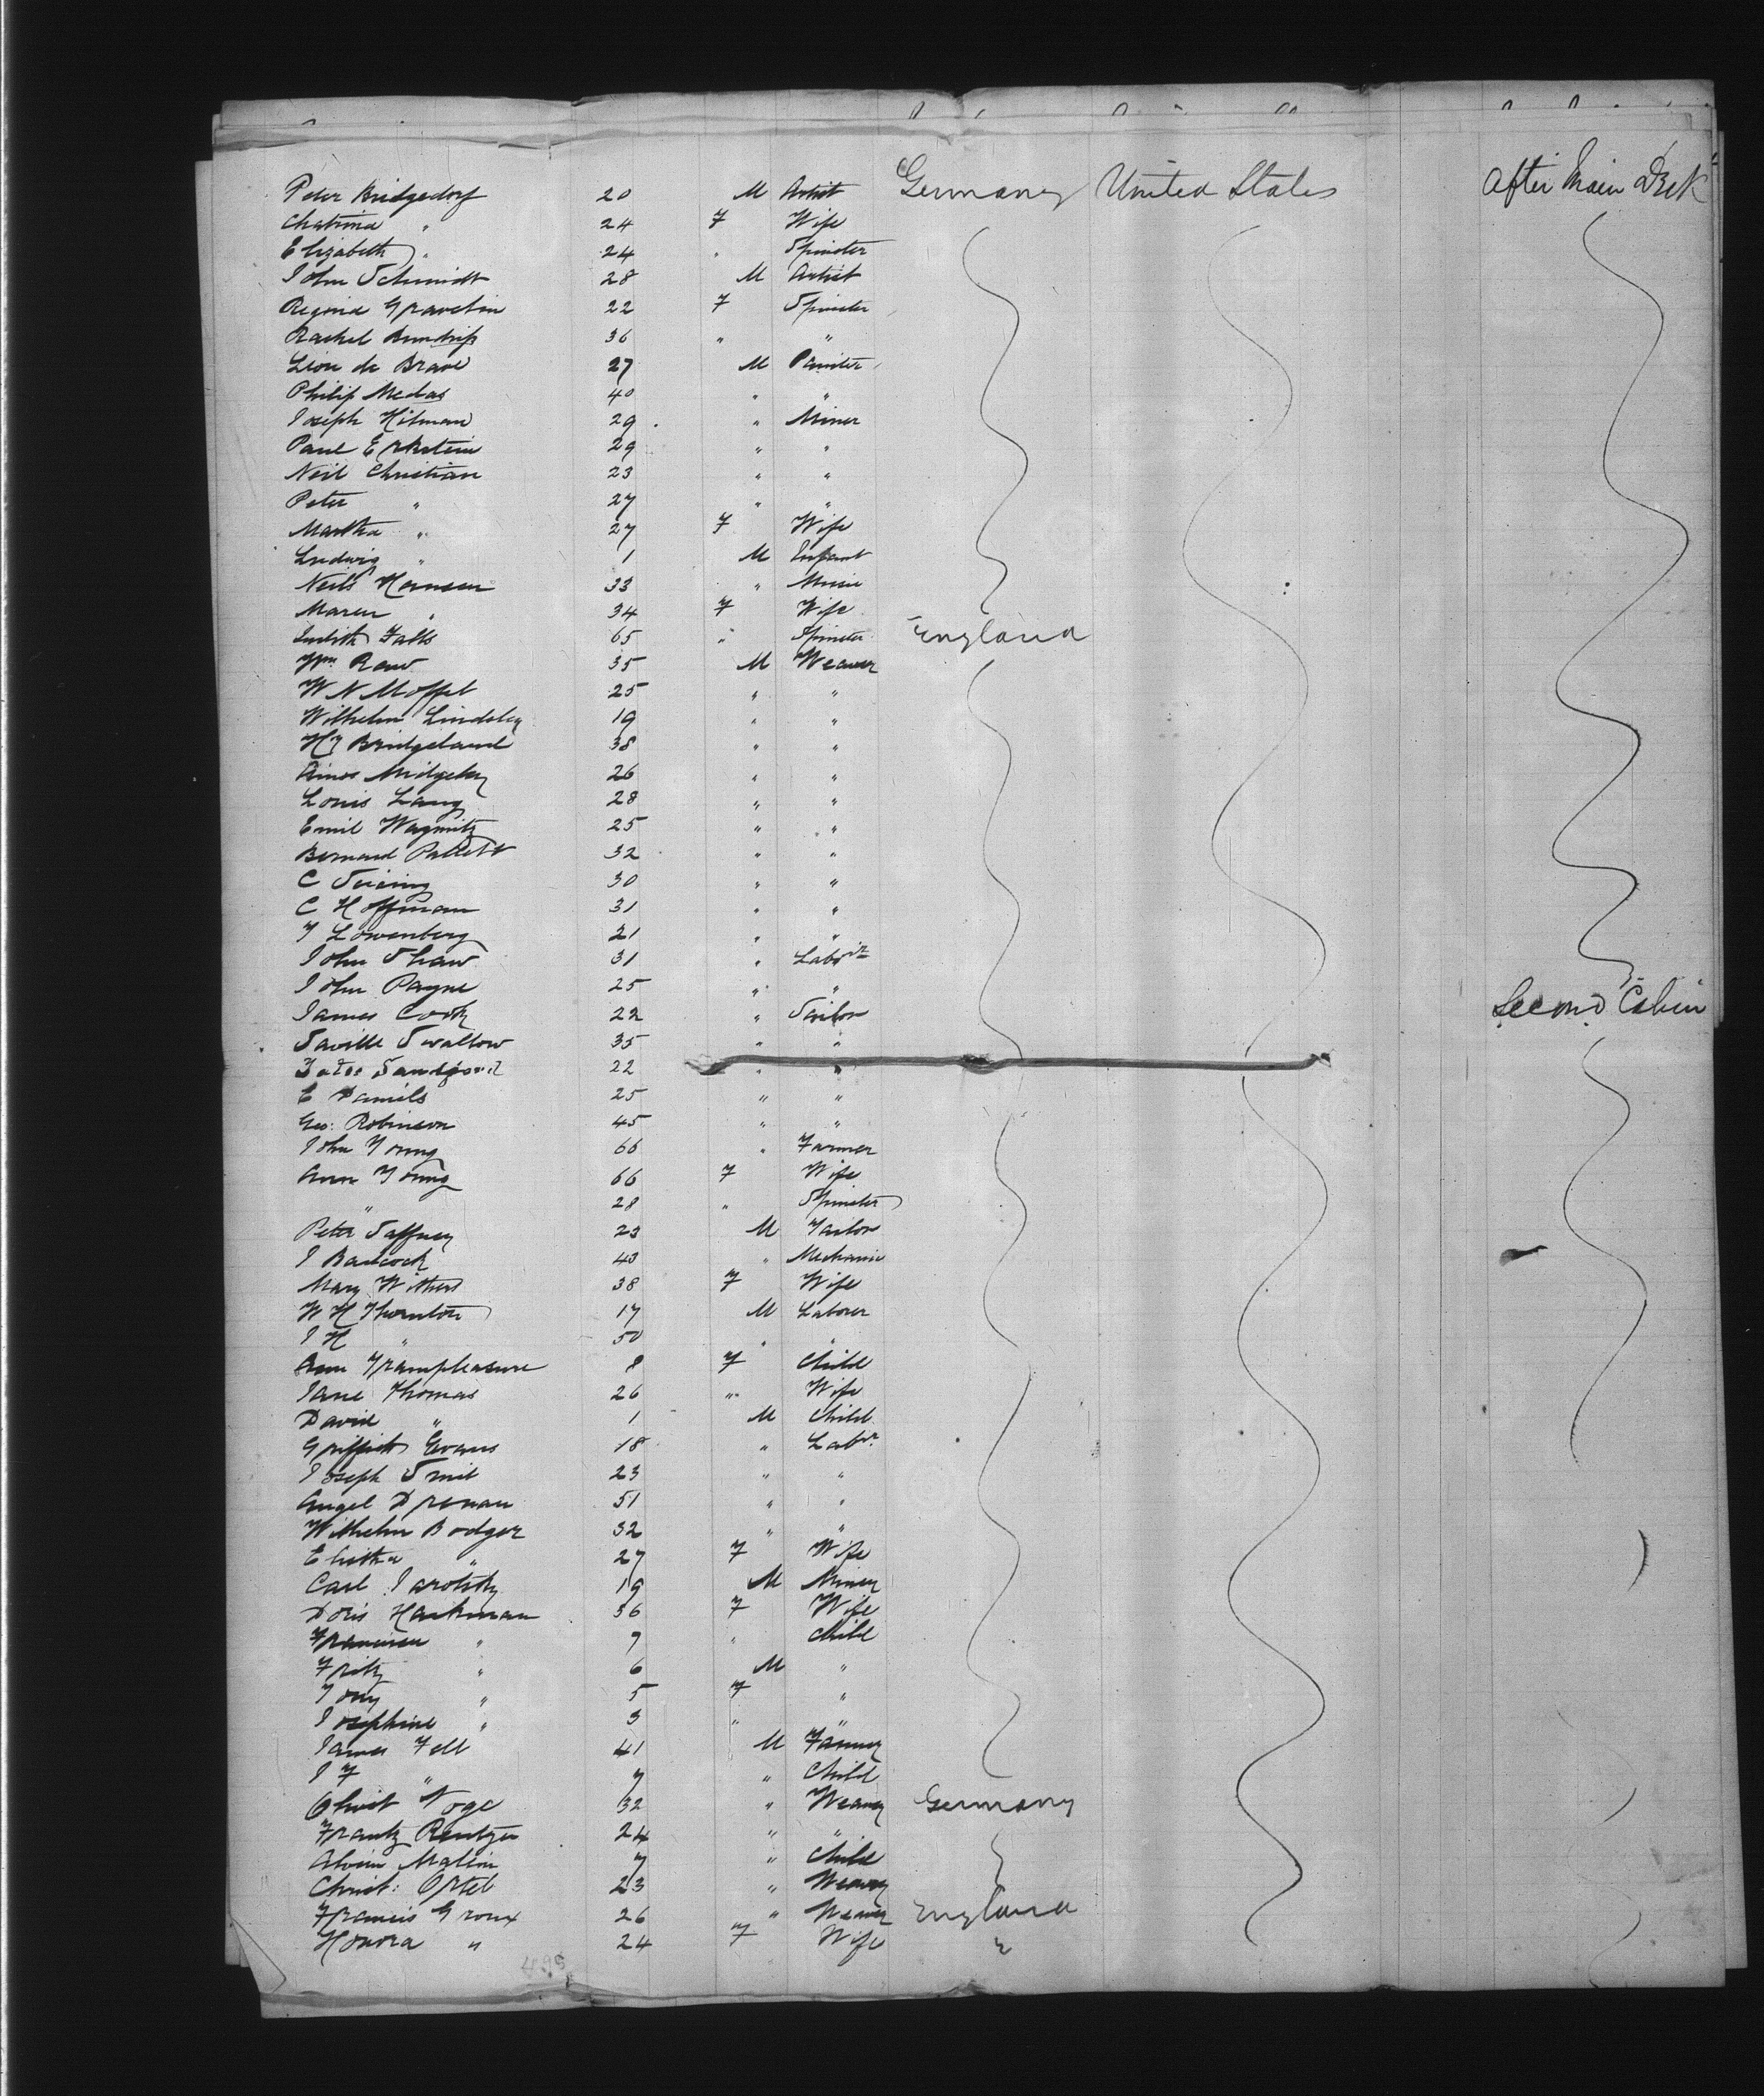 Peter Bridgedorf 20 M Artist Germany United States After Main Deck
Chatrina " 24 F Wife
Elizabeth " 24 " Spinster
John Schmidt 28 M Artist
Regina Gravelin 22 F Spinster
Rachel 36 " "
Leon de Brave 27 M Painter
Philip Medas 40 " "
Joseph Hilman 29 " Miner
Paul Epkstein 29 " "
Neil Christian 23 " "
Peter " 27 " "
Martha " 27 F Wife
Ludwig " 1 M Infant
Neils Hansen 33 " Music
Maren " 34 F Wife
Judith Falls 65 " Spinster England
Wm Raw 35 M Weaver
W N Moffet 25 " "
Wilhelm Lindsley 19 " "
Hy Bridgeland 38 " "
Amos Midgeley 26 " "
Louis Lang 28 " "
Emil Wagnitz 25 " "
Bernard Pallett 32 " "
C 30 " "
C Hoffman 31 " "
F Lowenberg 21 " "
John Shaw 31 " Labr
John Payne 25 " "
James Cook 22 " Sailor Second Cabin
Saville Swallow 35 " "
Sandford 22 " "
E Daniels 25 " "
Geo: Robinson 45 " "
John Young 66 " Farmer
Ann Young 66 F Wife
" 28 " Spinster
Peter Saffney 23 M Tailor
J Bancock 43 " Mechanic
Mary Withers 38 F Wife
W H Thornton 17 M Laborer
J H " 50 " "
Ann Trampleasure 8 F Child
Jane Thomas 26 " Wife
David " 1 M Child
Griffith Evans 18 " Labr
Joseph Smit 23 " "
Angel Drenan 51 " "
Wilhelm Bodger 32 " "
" 27 F Wife
Carl 19 M Miner
Doris Harkman 36 F Wife
" 7 " Child
Fritz " 6 M "
Tony " 5 F "
Josephine " 3 " "
James Fell 41 M
J F " 7 " Child
Christ Noge 32 " Weaver Germany
Frantz Rentzer 24 " "
Alvin Malein 7 " Child
Christ: Ortel 23 " Weaver
Francis Groux 26 " Weaver England
Honora " 24 F Wife "